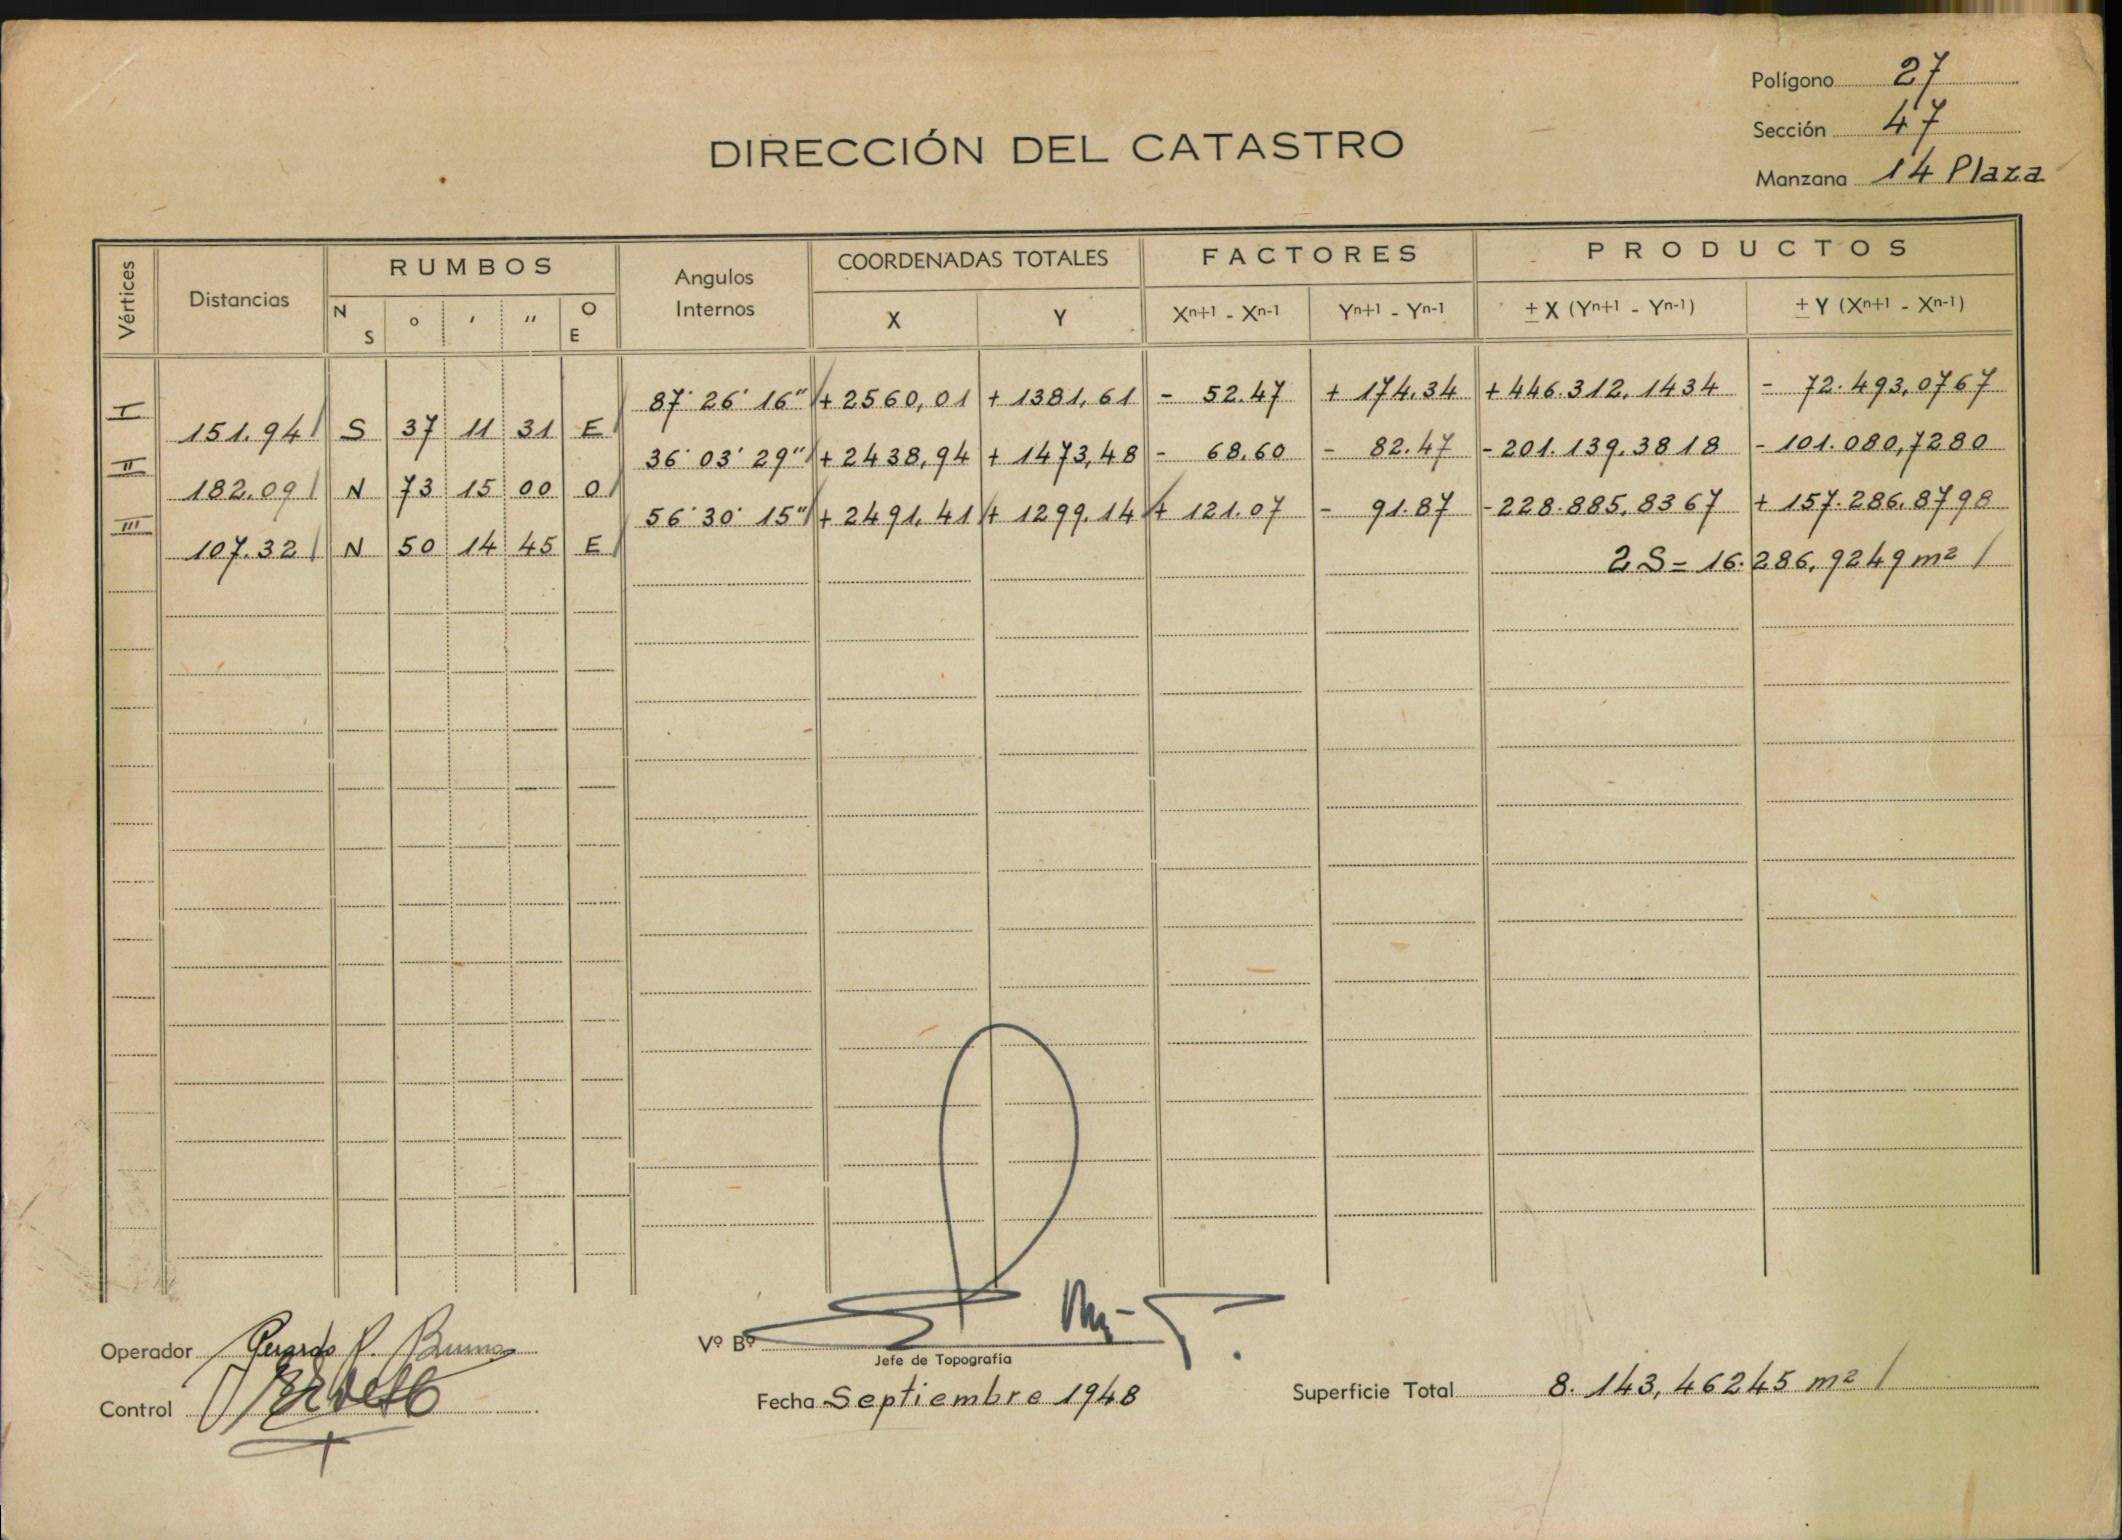 Polígono 27
Sección 47
Manzana 14 Plaza
DIRECCIÓN DEL CATASTRO
Vértices Distancias RUMBOS Angulos Internos COORDENADAS TOTALES FACTORES PRODUCTOS
N S ° ' '' O E X Y Xn+1 - Xn-1 Yn+1 - Yn-1 ± X (Yn+1 - Yn-1) ± Y (Xn+1 - Xn-1)
I 87° 26' 16" + 2560,01 + 1381,61 - 52.47 + 174.34 + 446.312,1434 - 72.493,0767
151.94 S 37 11 31 E
II 36° 03' 29" + 2438,94 + 1473,48 - 68.60 - 82.47 - 201.139,3818 - 101.080,7280
182.09 N 73 15 00 O
III 56° 30' 15" + 2491,41 + 1299,14 + 121.07 - 91.87 - 228.885,8367 + 157.286,8798
107.32 N 50 14 45 E
2S = 16.286,9249 m²
Operador Gerardo R.
Vº Bº
Jefe de Topografía
Control
Fecha Septiembre 1948
Superficie Total 8.143,46245 m²